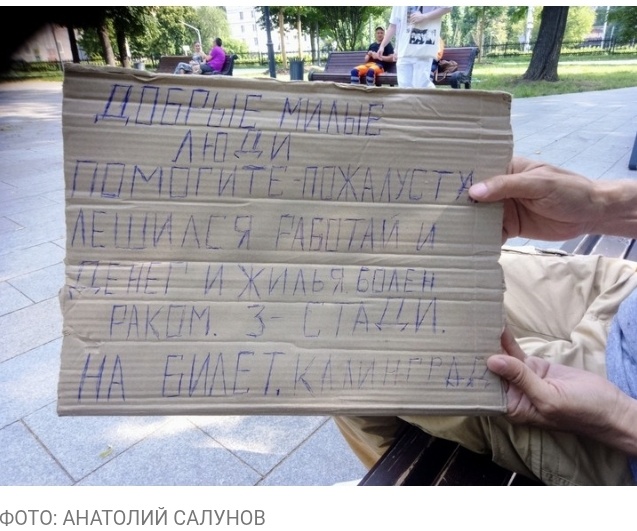 ДОБРЫЕ МИЛЫЕ
ЛЮДИ
ПОМОГИТЕ-ПОЖАЛУСТА
ЛЕШИЛСЯ РАБОТАЙ И
ДЕНЕГ И ЖИЛЬЯ БОЛЕН
РАКОМ. 3- СТАДИ.
НА БИЛЕТ. КАЛИНГРАД
ФОТО: АНАТОЛИЙ САЛУНОВ